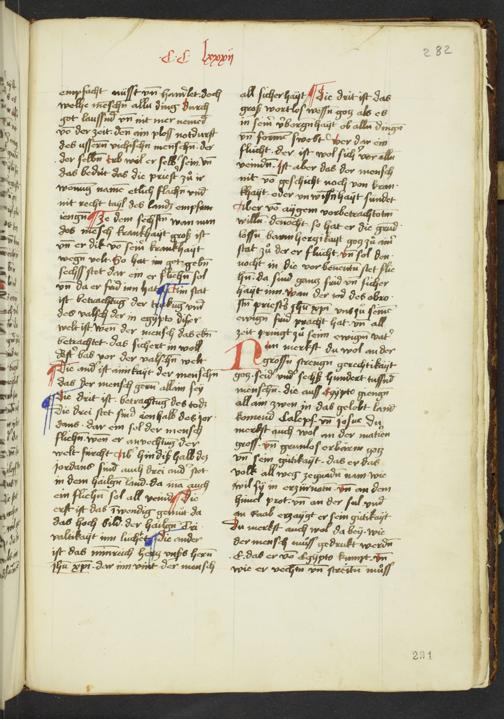 CC lxxxij
282
empfacht müsst vn handlet doch
welhe menschn allu ding durch
got laussend vn nit mer nemend
vo der zeit den ain plosß notdurft
des ussern vichischn menschn der
der selbn tail wöl er selb sein vn
das bedüt das die priest zu ir
wonung name etlich flachn vnd
nit recht tayl des lands empfien
iengn Ze dem sechstn wan nun
des mensch krankhayt groß ist
vn er dik vo sein krankhayt
wegn velt So hat im got gebn
sechß stet dar ein er fliehn sol
vn da er frid inn hat Ain stat
ist betrachtug der trübnuß vnd
des valsch der in egypto diser
welt ist wen der mensch das ebn
betrachtet das sichert in woll
vast bas vor der valschn welt
Die and ist ainikayt der menschn
das der mensch gern allain sey
Die drit ist betrachtug des todß
die drei stet sind ienhalb des jor
dans dar ein sol der mensch
fliehn wen er anvechtug der
welt fürcht Aber hindishalb des
jordans sind auch drei and stet
in dem hailgn land da ma auch
ein fliehn sol all vend Die
erst ist das inwendig gemüt da
das hoch bild der hailgn Dri
valtikayt inn lüchtet Die ander
ist das innrich herz vnsß herrn
jhu xpi dar inn vint der mensch
all sicherhayt Die drit ist das
groß wortlos wesen gotz als es
in sein verborgnhayt ob allen dingn
vn forme swebt Wer dar ein
flücht der ist wol sich vor allu
veindn Ist aber das der mensch
nit vo geschicht noch von kran
khayt oder vn wissnhayt sündet
Aber vo aigem vorbetrachtotn
willn dennocht so hat er die grund
lossn barmherzikayt gotz zu ain
stat zu der er flücht vn sol den
nocht in die vor benentn stet flie
hn da sind gantz frid vn sicher
hayt inn Wan der ind des obro
stn priestrß jhu xpi vnß zu seim
ewign frid pracht hat vn all
zeit pringt zu seim ewign vatr
Nun merkst du wol an der
grossn strengn gerechtikayt
gotz seid vnd sechß hundert tussnd
menschn die auß Egipto giengn
all ain zwen in das gelobt land
komend Caleph vn josue Du
merkst auch wol an der materi
grossn vn grunlos erbarm gotz
vn sein gütikayt das er das
volk all weg zegnadn nam wie
wil sy in erzürntn vn an dem
himel prot vn an der sul vnd
an taub erzaygt er sein gütikayt
Du merkst auch wol da bey wie
der mensch muß gedrukt werdn
E das er vo Egypto kumpt vn
wie er vechtn vn streitn muß
281